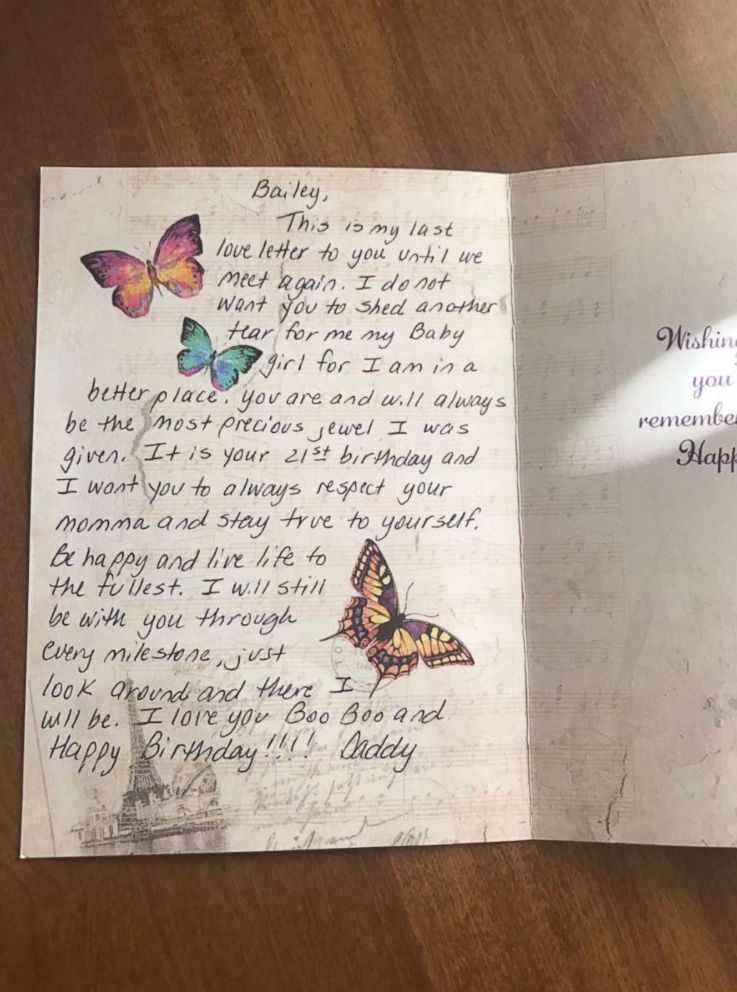 Bailey,
This is my last
love letter to you until we
meet again. I do not
want you to shed another
tear for me my Baby
girl for I am in a
better place. you are and will always
be the most precious jewel I was
given. It is your 21st birthday and
I want you to always respect your
momma and stay true to yourself.
Be happy and live life to
the fullest. I will still
be with you through
every milestone, just
look around and there I
will be. I love you Boo Boo and
Happy Birthday!!!! Daddy
Wishin
you
remember
Happ